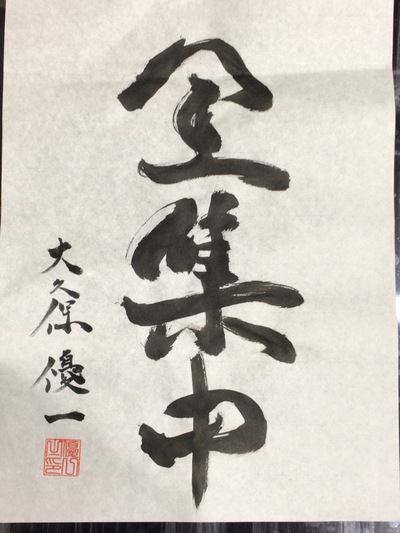 全集中
大久保優一